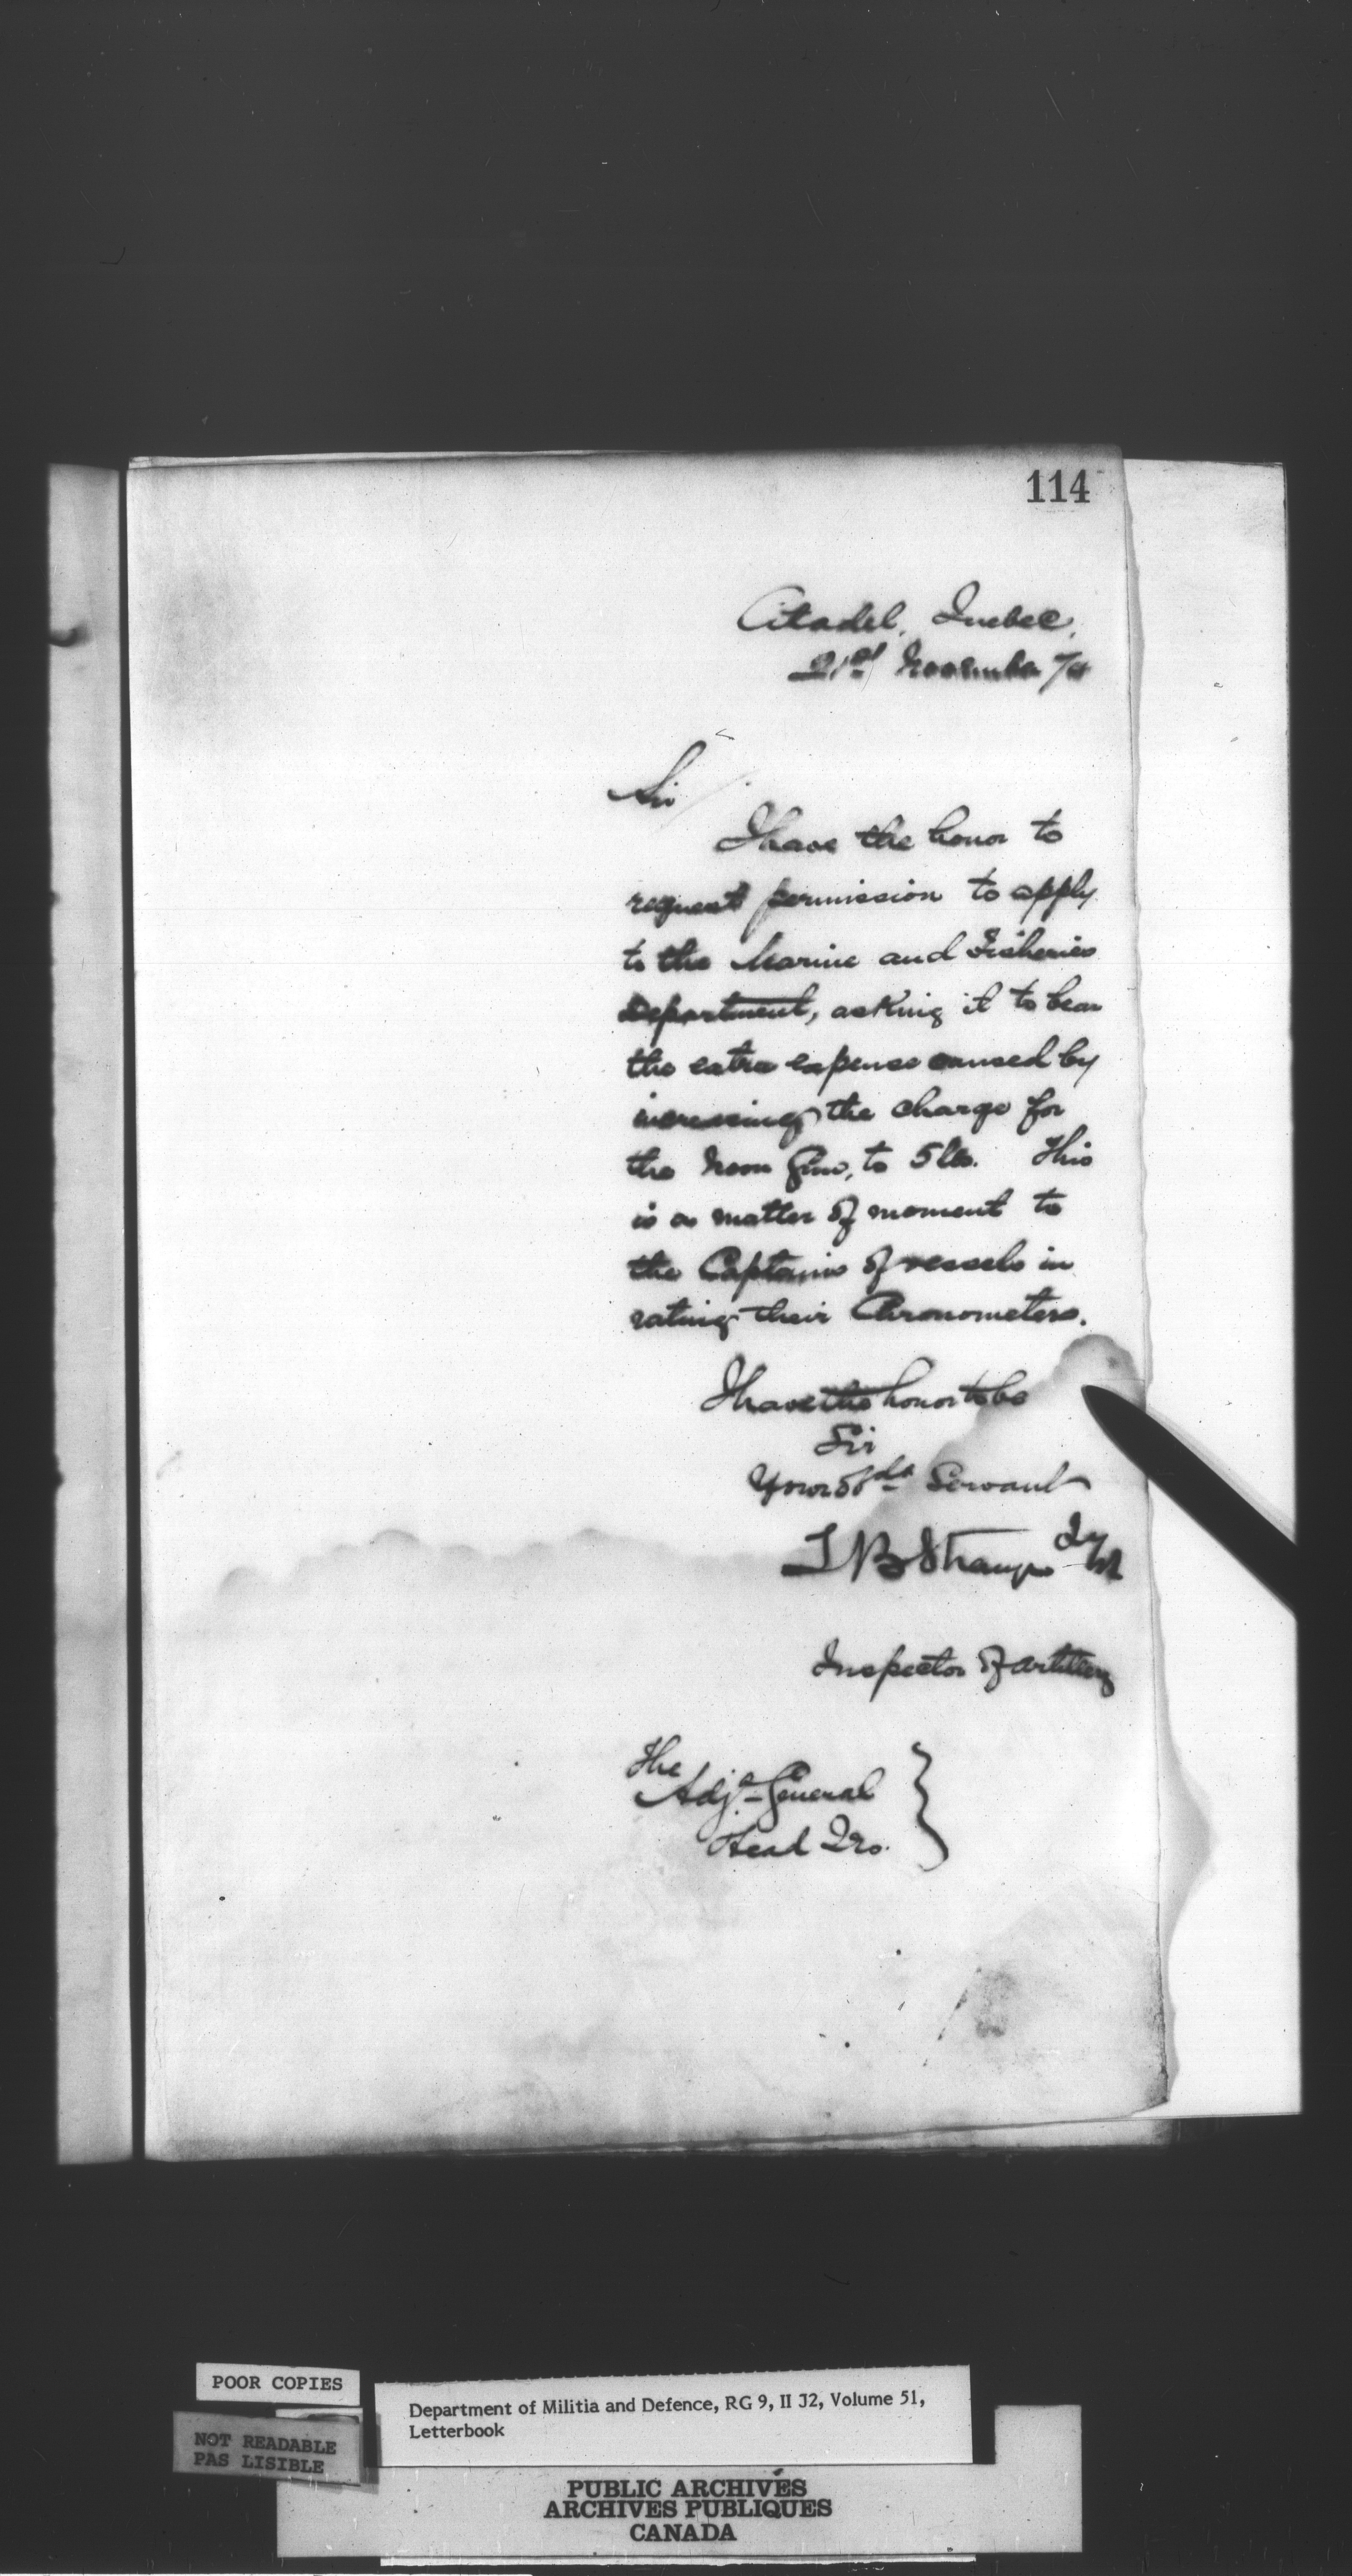 114
Citadel, Quebec,
21st November /74
Sir
I have the honor to
request permission to apply
to the Marine and Fisheries
Department, asking it to bear
the extra expense caused by
increasing the charge for
the Noon Gun, to 5 lbs. This
is a matter of moment to
the Captains of vessels in
rating their Chronometers.
I have the honor to be
Sir
Your Obdt Servant
T B Strange
Inspector of Artillery
The
Adjt General
Head Qrs.
POOR COPIES
NOT READABLE
PAS LISIBLE
Department of Militia and Defence, RG 9, II J2, Volume 51,
Letterbook
PUBLIC ARCHIVES
ARCHIVES PUBLIQUES
CANADA